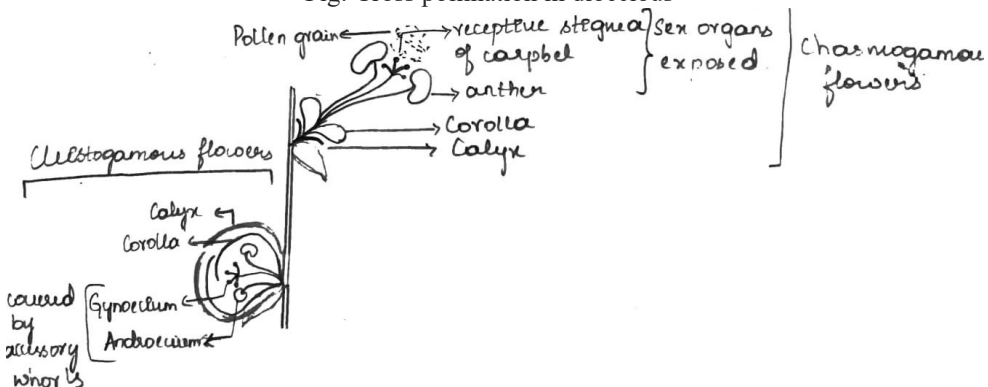 Pollen grain
receptive stigma
of carpbel
anther
Sex organs
exposed
Chasmogamou
flowers
Corolla
Calyx
Cleistogamous flowers
Calyx
Corolla
Gynoecium
Androecium
covered
by
accessory
whorls